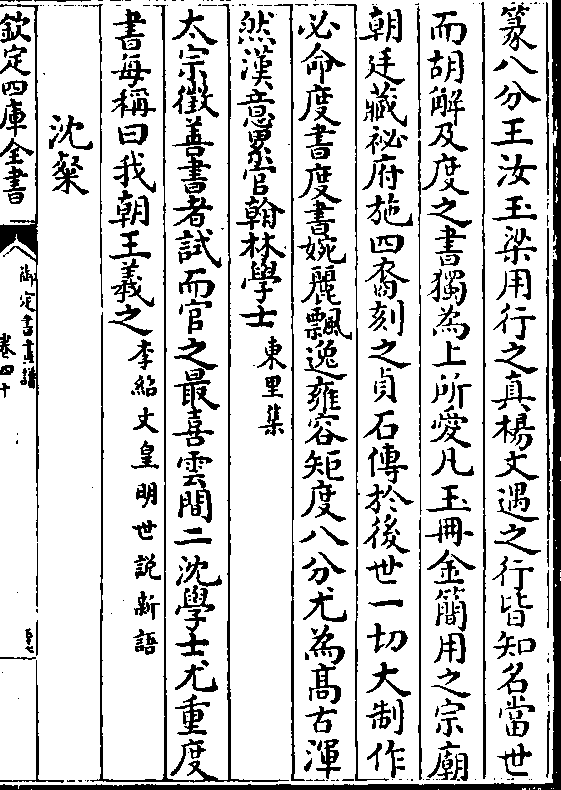 篆八分王汝玉梁用行之真楊文遇之行皆知名當世
而胡解及度之書獨為上所愛凡玉冊金簡用之宗廟
朝廷藏祕府施四裔刻之貞石傳於後世一切大制作
必命度書度書婉麗飄逸雍容矩度八分尤為高古渾
然漢意累官翰林學士東里集
太宗徵善書者試而官之最喜雲間二沈學士尤重度
書每稱曰我朝王羲之李紹文皇明世說新語
沈粲
欽定四庫全書
御定書畫譜
卷四十